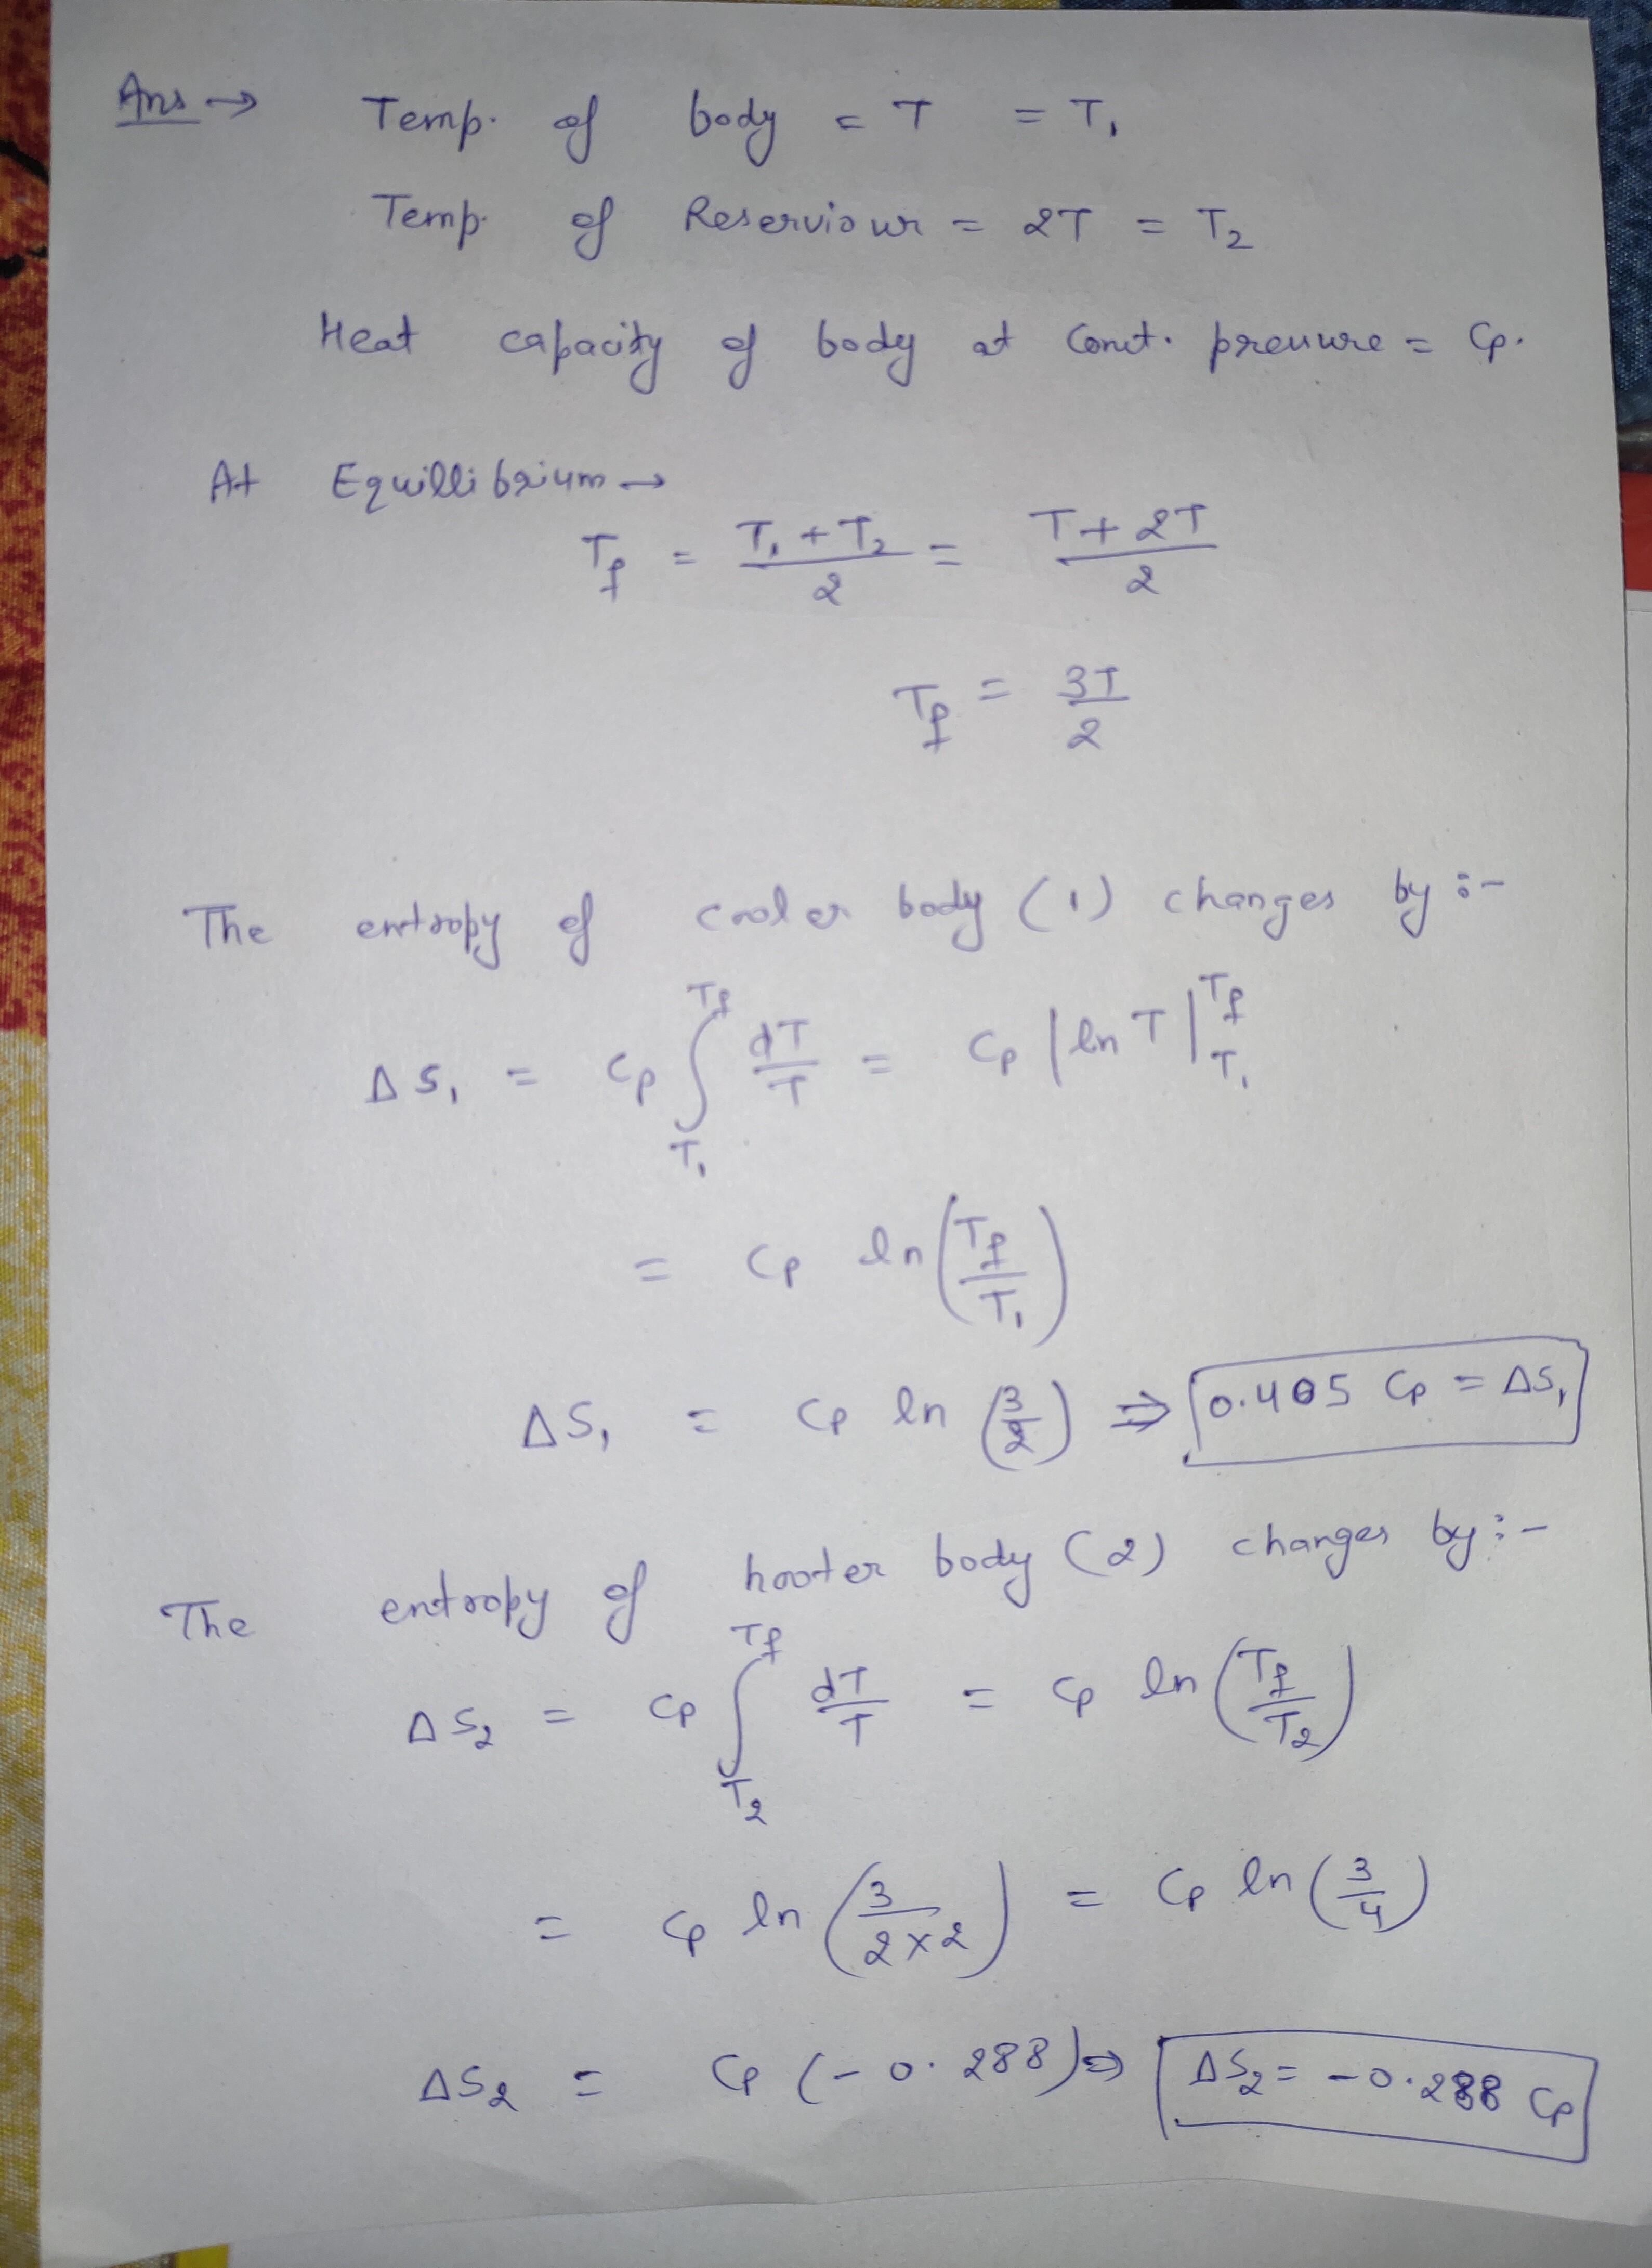 Ans → Temp. of body = T = T₁
Temp. of Reserviour = 2T = T₂
Heat capacity of body at Const. pressure = Cp.
At Equillibrium →
T_f = (T₁ + T₂)/2 = (T + 2T)/2
T_f = 3T/2
The entropy of cooler body (1) changes by :-
ΔS₁ = Cp ∫_{T₁}^{T_f} dT/T = Cp |ln T|_{T₁}^{T_f}
= Cp ln (T_f/T₁)
ΔS₁ = Cp ln (3/2) ⇒ 0.405 Cp = ΔS₁
The entropy of hooter body (2) changes by :-
ΔS₂ = Cp ∫_{T₂}^{T_f} dT/T = Cp ln (T_f/T₂)
= Cp ln (3/(2×2)) = Cp ln (3/4)
ΔS₂ = Cp (-0.288) ⇒ ΔS₂ = -0.288 Cp